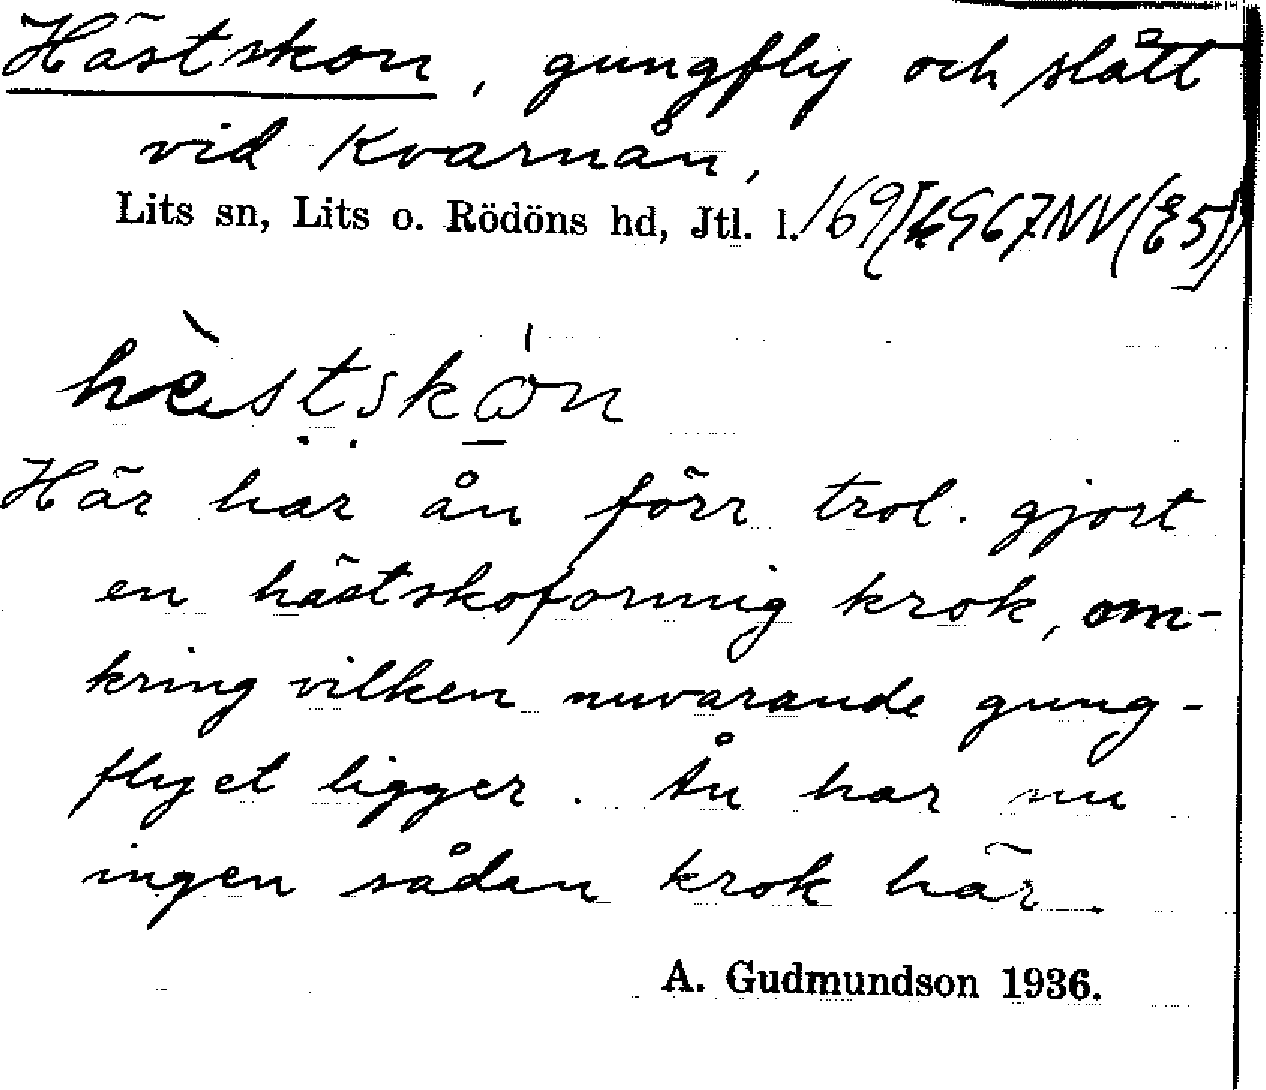 Hästskon, gungfly och slått
vid Kvarnån,
Lits sn, Lits o. Rödöns hd, Jtl. l. 169
hèstskon
Här har ån förr trol. gjort
en hästskoformig krok, om-
kring vilken nuvarande gung-
flyet ligger. Ån har nu
ingen sådan krok här.
A. Gudmundson 1936.